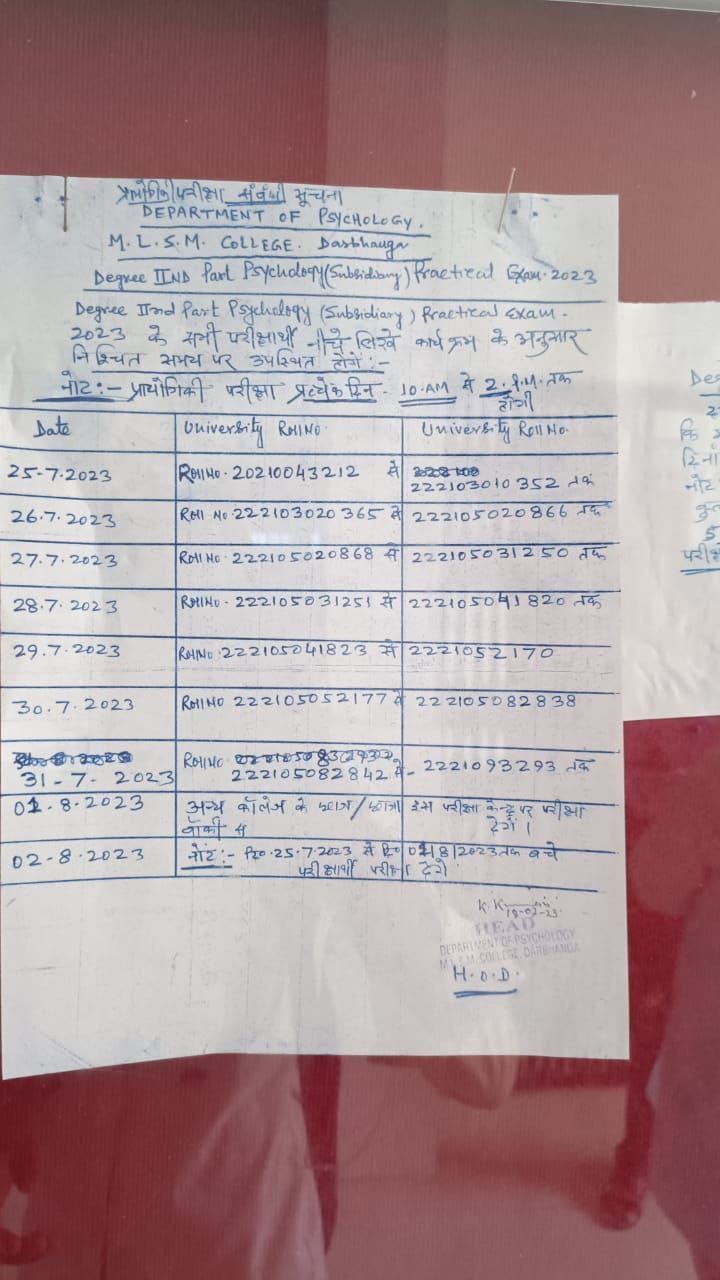 प्रायोगिकी परीक्षा संबंधी सूचना
DEPARTMENT OF PSYCHOLOGY.
M.L.S.M. COLLEGE. Darbhanga
Degree IIND Part Psychology (Subsidiary) Practical Exam-2023
Degree IInd Part Psychology (Subsidiary) Practical Exam-
2023 के सभी परीक्षार्थी नीचे लिखे कार्य क्रम के अनुसार
निश्चित समय पर उपस्थित होंगे:-
नोट:- प्रायोगिकी परीक्षा प्रत्येक दिन- 10.AM से 2.P.M. तक होगी
Date University Roll No. University Roll No.
25-7.2023 Roll No. 20210043212 से 222103010352 तक
26.7.2023 Roll No. 222103020365 से 222105020866 तक
27.7.2023 Roll No. 222105020868 से 222105031250 तक
28.7.2023 Roll No. 222105031251 से 222105041820 तक
29.7.2023 Roll No. 222105041823 से 2221052170
30.7.2023 Roll No 222105052177 से 222105082838
31-7.2023 Roll No. 222105082842 से- 2221093293 तक
01.8.2023 अन्य कॉलेज के छात्र/छात्रा इस परीक्षा केन्द्र पर परीक्षा
देगें।
02-8.2023 नोट:- दि० 25.7.2023 से दि० 01|8|2023 तक बचे
परीक्षार्थी परीक्षा देंगे
HEAD
DEPARTMENT OF PSYCHOLOGY
M.L.S.M. COLLEGE, DARBHANGA
H.O.D.
Deg
कि
दिनां
नोट
परीक्ष